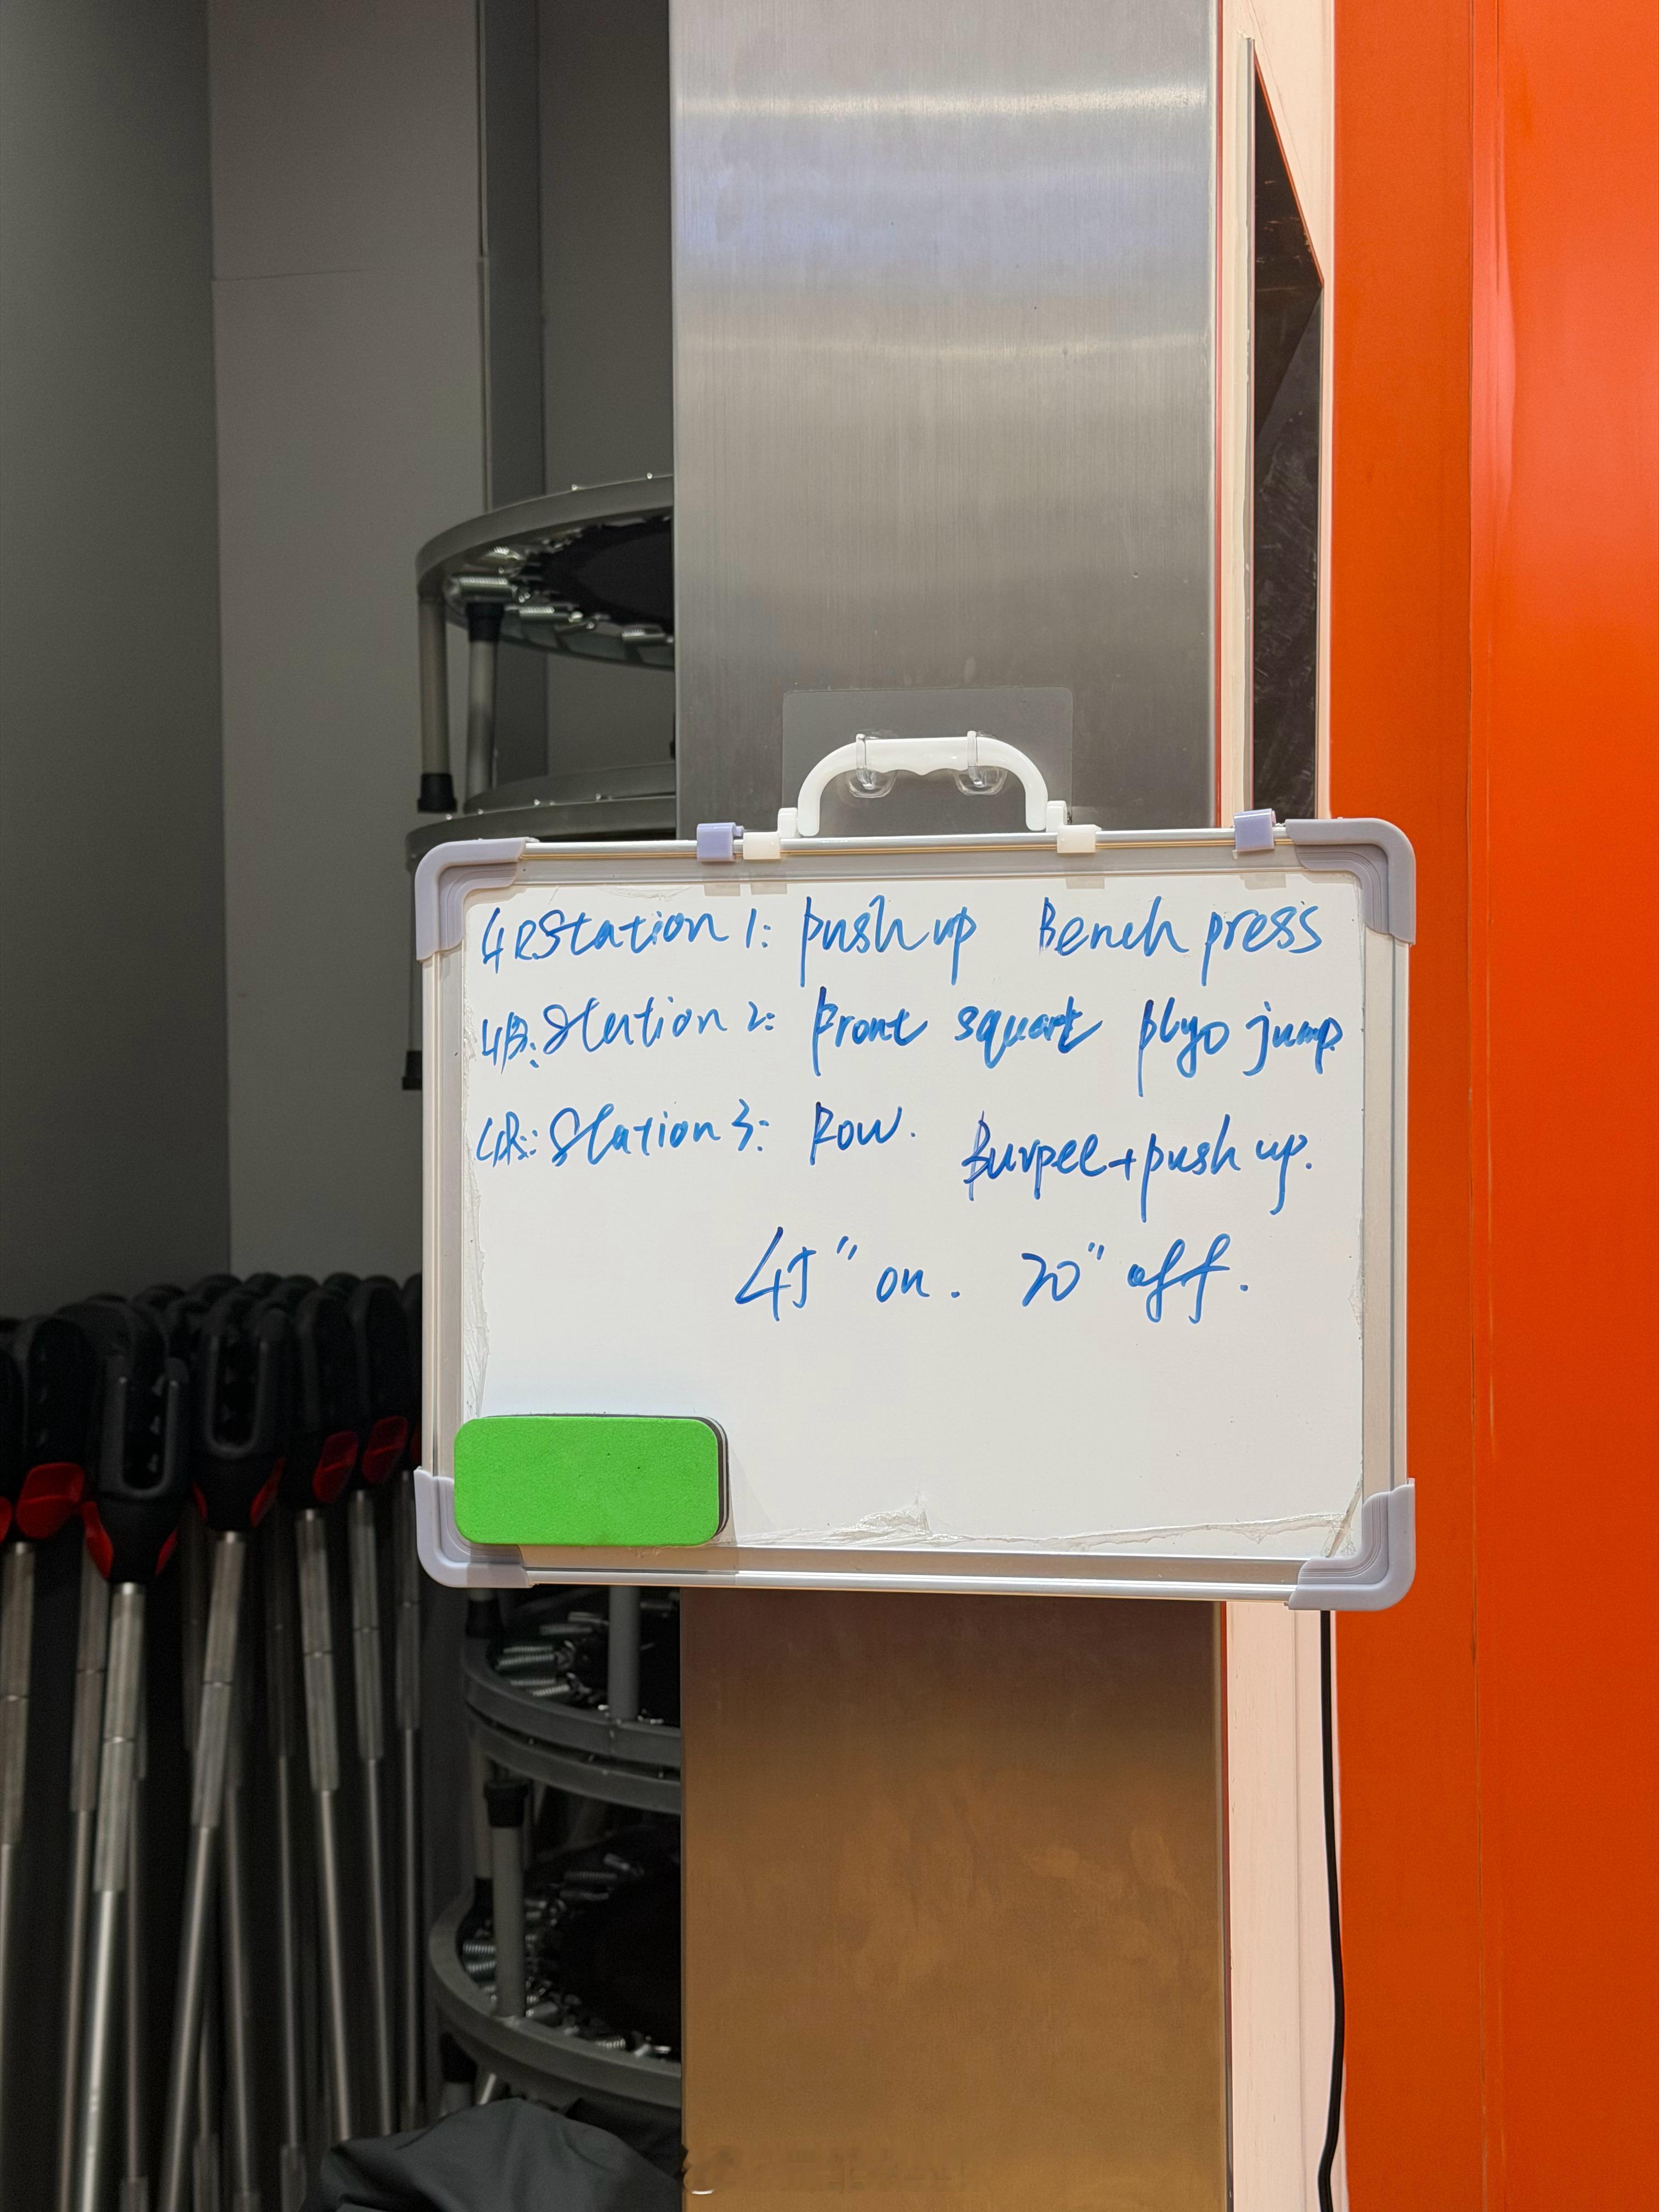 4R Station 1: push up Bench press
4R: Station 2: Front squart plyo jump
4R: Station 3: Row. Burpee + push up.
45" on. 20" off.